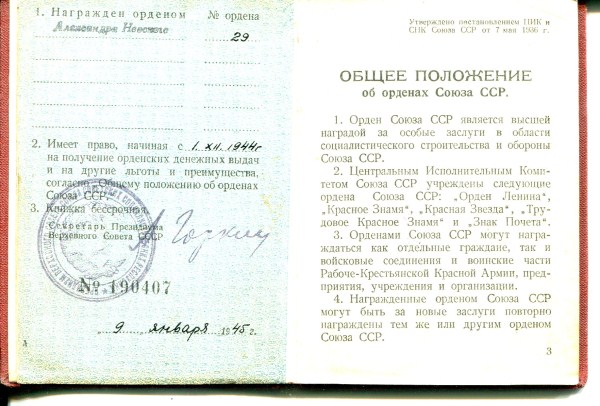 1. Награжден орденом № ордена
Александра Невского
29
2. Имеет право, начиная с 1. XII. 1944г
на получение орденских денежных выдач
и на другие льготы и преимущества,
согласно Общему положению об орденах
Союза ССР.
3. Книжка бессрочная.
Секретарь Президиума
Верховного Совета СССР
№ 190407
„ 9 " января 1945 г.
Утверждено постановлением ЦИК и
СНК Союза ССР от 7 мая 1936 г.
ОБЩЕЕ ПОЛОЖЕНИЕ
об орденах Союза ССР.
1. Орден Союза ССР является высшей
наградой за особые заслуги в области
социалистического строительства и обороны
Союза ССР.
2. Центральным Исполнительным Коми-
тетом Союза ССР учреждены следующие
ордена Союза ССР: „Орден Ленина",
„Красное Знамя", „Красная Звезда", „Тру-
довое Красное Знамя" и „Знак Почета".
3. Орденами Союза ССР могут награ-
ждаться как отдельные граждане, так и
войсковые соединения и воинские части
Рабоче-Крестьянской Красной Армии, пред-
приятия, учреждения и организации.
4. Награжденные орденом Союза ССР
могут быть за новые заслуги повторно
награждены тем же или другим орденом
Союза ССР.
3